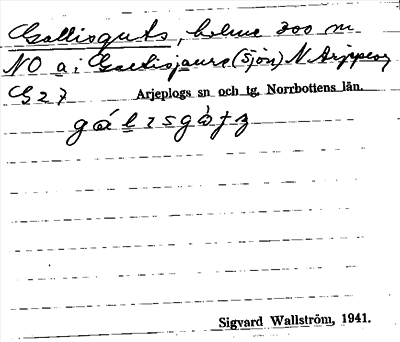 Gallisguts, holme 300 m
NO a; Gallisjaure (sjön) N Arjeplog
G 27 Arjeplogs sn och tg. Norrbottens län.
Sigvard Wallström, 1941.